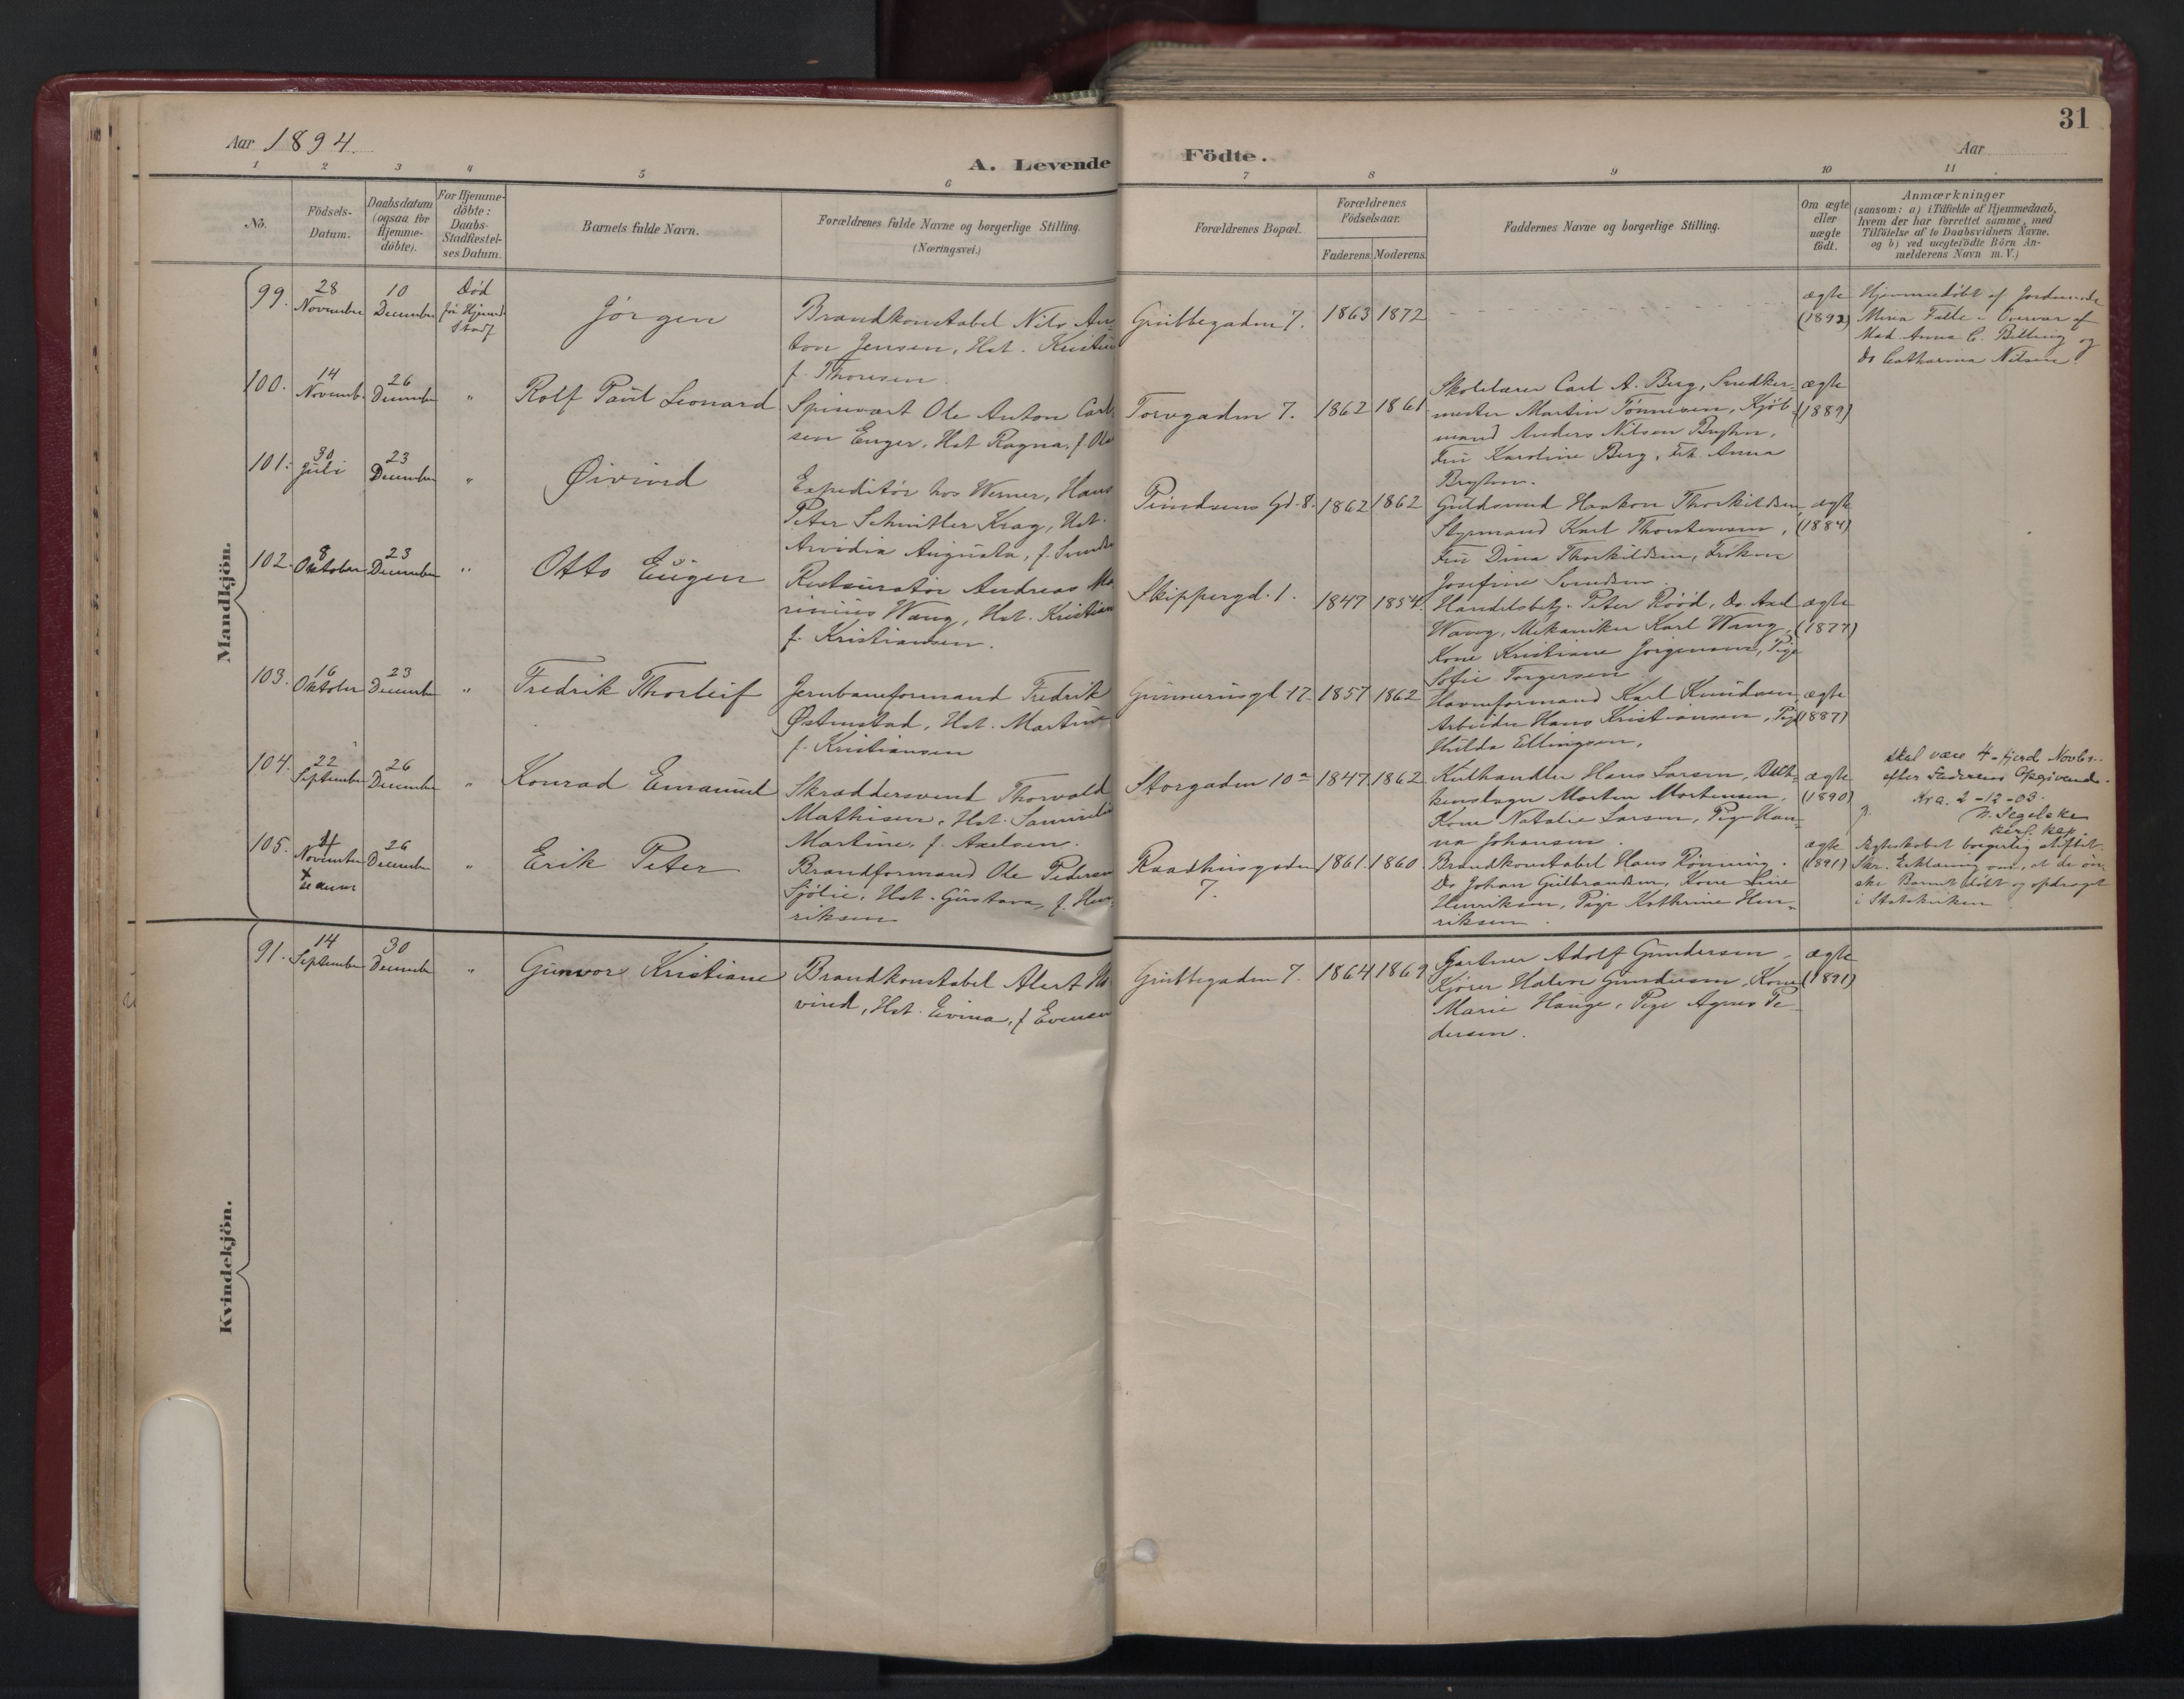 31
Aar 1894.
A. Levende Födte.
Aar
1 2 3 4 5 6 7 8 9 10 11
No.
Födsels-
Datum.
Daabsdatum
(ogsaa for
Hjemme-
döbte).
For Hjemme-
döbte:
Daabs-
Stadfæstel-
ses Datum.
Barnets fulde Navn.
Forældrenes fulde Navne og borgerlige Stilling.
(Næringsvei.)
Forældrenes Bopæl.
Forældrenes
Födselsaar.
Faderens. Moderens.
Faddernes Navne og borgerlige Stilling.
Om ægte
eller
uægte
födt.
Anmærkninger
(saasom: a) i Tilfælde af Hjemmedaab,
hvem der har forrettet samme, med
Tilföielse af to Daabsvidners Navne.
og b) ved uægtefödte Börn An-
melderens Navn m. V.)
Mandkjön.
99.
28
November
10
December
Død
før Hjemmed
Stadf
Jørgen
Brandkonstabel Nils An-
ton Jensen, Hst. Kristin
f. Thoresen.
Grubbegaden 7.
1863 1872
ægte
(1892)
Hjemmedøbt af Jordemoder
Mina Falle i Overvær af
Mad. Anna C. Billing og
Do Catharina Nilsen.
100.
14
Novemb.
26
December
"
Rolf Paul Leonard
Spisevært Ole Anton Carl-
sen Enger, Hst Ragna, f. Ols
Torvgaden 7.
1862 1861
Skolelærer Carl A. Berg, Snedker-
mester Martin Tønnesen, Kjøb-
mand Anders Nilsen
Fru Karoline Berg, Frk. Anna
ægte
(1889)
101.
30
Juli
23
December
"
Øivind
Expeditør hos Werner, Hans
Peter Schnitler Krag, Hst.
Arvidia Augusta, f. Svends
Gd. 8.
1862 1862
Guldsmed Haakon Thorkildsen,
Styrmand Karl Thorstensen,
Fru Dina Thorkildsen, Frøken
Josefine Svendsen.
ægte
(1884)
102.
8
Oktober
23
December
"
Otto Eugen
Restauratør Andreas Ma-
rinius Wang, Hst. Kristian
f. Kristiansen.
Skippergd. 1.
1847 1854.
Handelsbetj. Peter Rööd, Do. Axel
Wang, Mekaniker Karl Wang,
Kone Kristiane Jørgensen, Pige
Sofie Torgersen
ægte
(1877)
103.
16
Oktober
23
December
"
Fredrik Thorleif
Jernbaneformand Fredrik
Østenstad, Hst. Martine
f. Kristiansen
Gunnerusgd 17.
1857 1862
Havneformand Karl Knudsen,
Arbeider Hans Kristiansen, Pige
Hilda Ellingsen,
ægte
(1887)
104.
22
September
26
December
"
Konrad Emanuel
Skræddersvend Thorvald
Mathisen, Hst.
Martine, f. Axelsen.
Storgaden 10 a
1847. 1862
Kulhandler Hans Larsen,
Morten Mortensen,
Kone Natalie Larsen, Pige Han-
na Johansen.
ægte
(1890)
skal være 4-fjerd Novbr.
efter Faderens Opgivende.
Kra. 2-12-03.
N. Segelcke
kerf. kap.
105.
4
November
26
December
"
Erik Peter
Brandformand Ole Pedersen
Sjölie, Hst. Gustava, f. Hen-
riksen
Raadhusgaden
7.
1861. 1860.
Brandkonstabel Hans Rönning.
Do Johan Gulbrandsen, Kone Line
Henriksen, Pige Kathrine Hen-
riksen.
ægte
(1891)
Ægteskabet borgerlig stiftet.
Skr. Erklæring om, at de øn-
ske Barnet døbt og opdraget
i Statskirken
Kvindekjön.
91.
14
September
30
December
"
Gunvor Kristiane
Brandkonstabel Alert
vind, Hst. Evina, f. Evensen
Grubbegaden 7.
1864 1869
Gartner Adolf Gundersen,
Kjører Halvor Gundersen, Kone
Marie Hauge, Pige Agnes Pe-
dersen.
ægte
(1891)